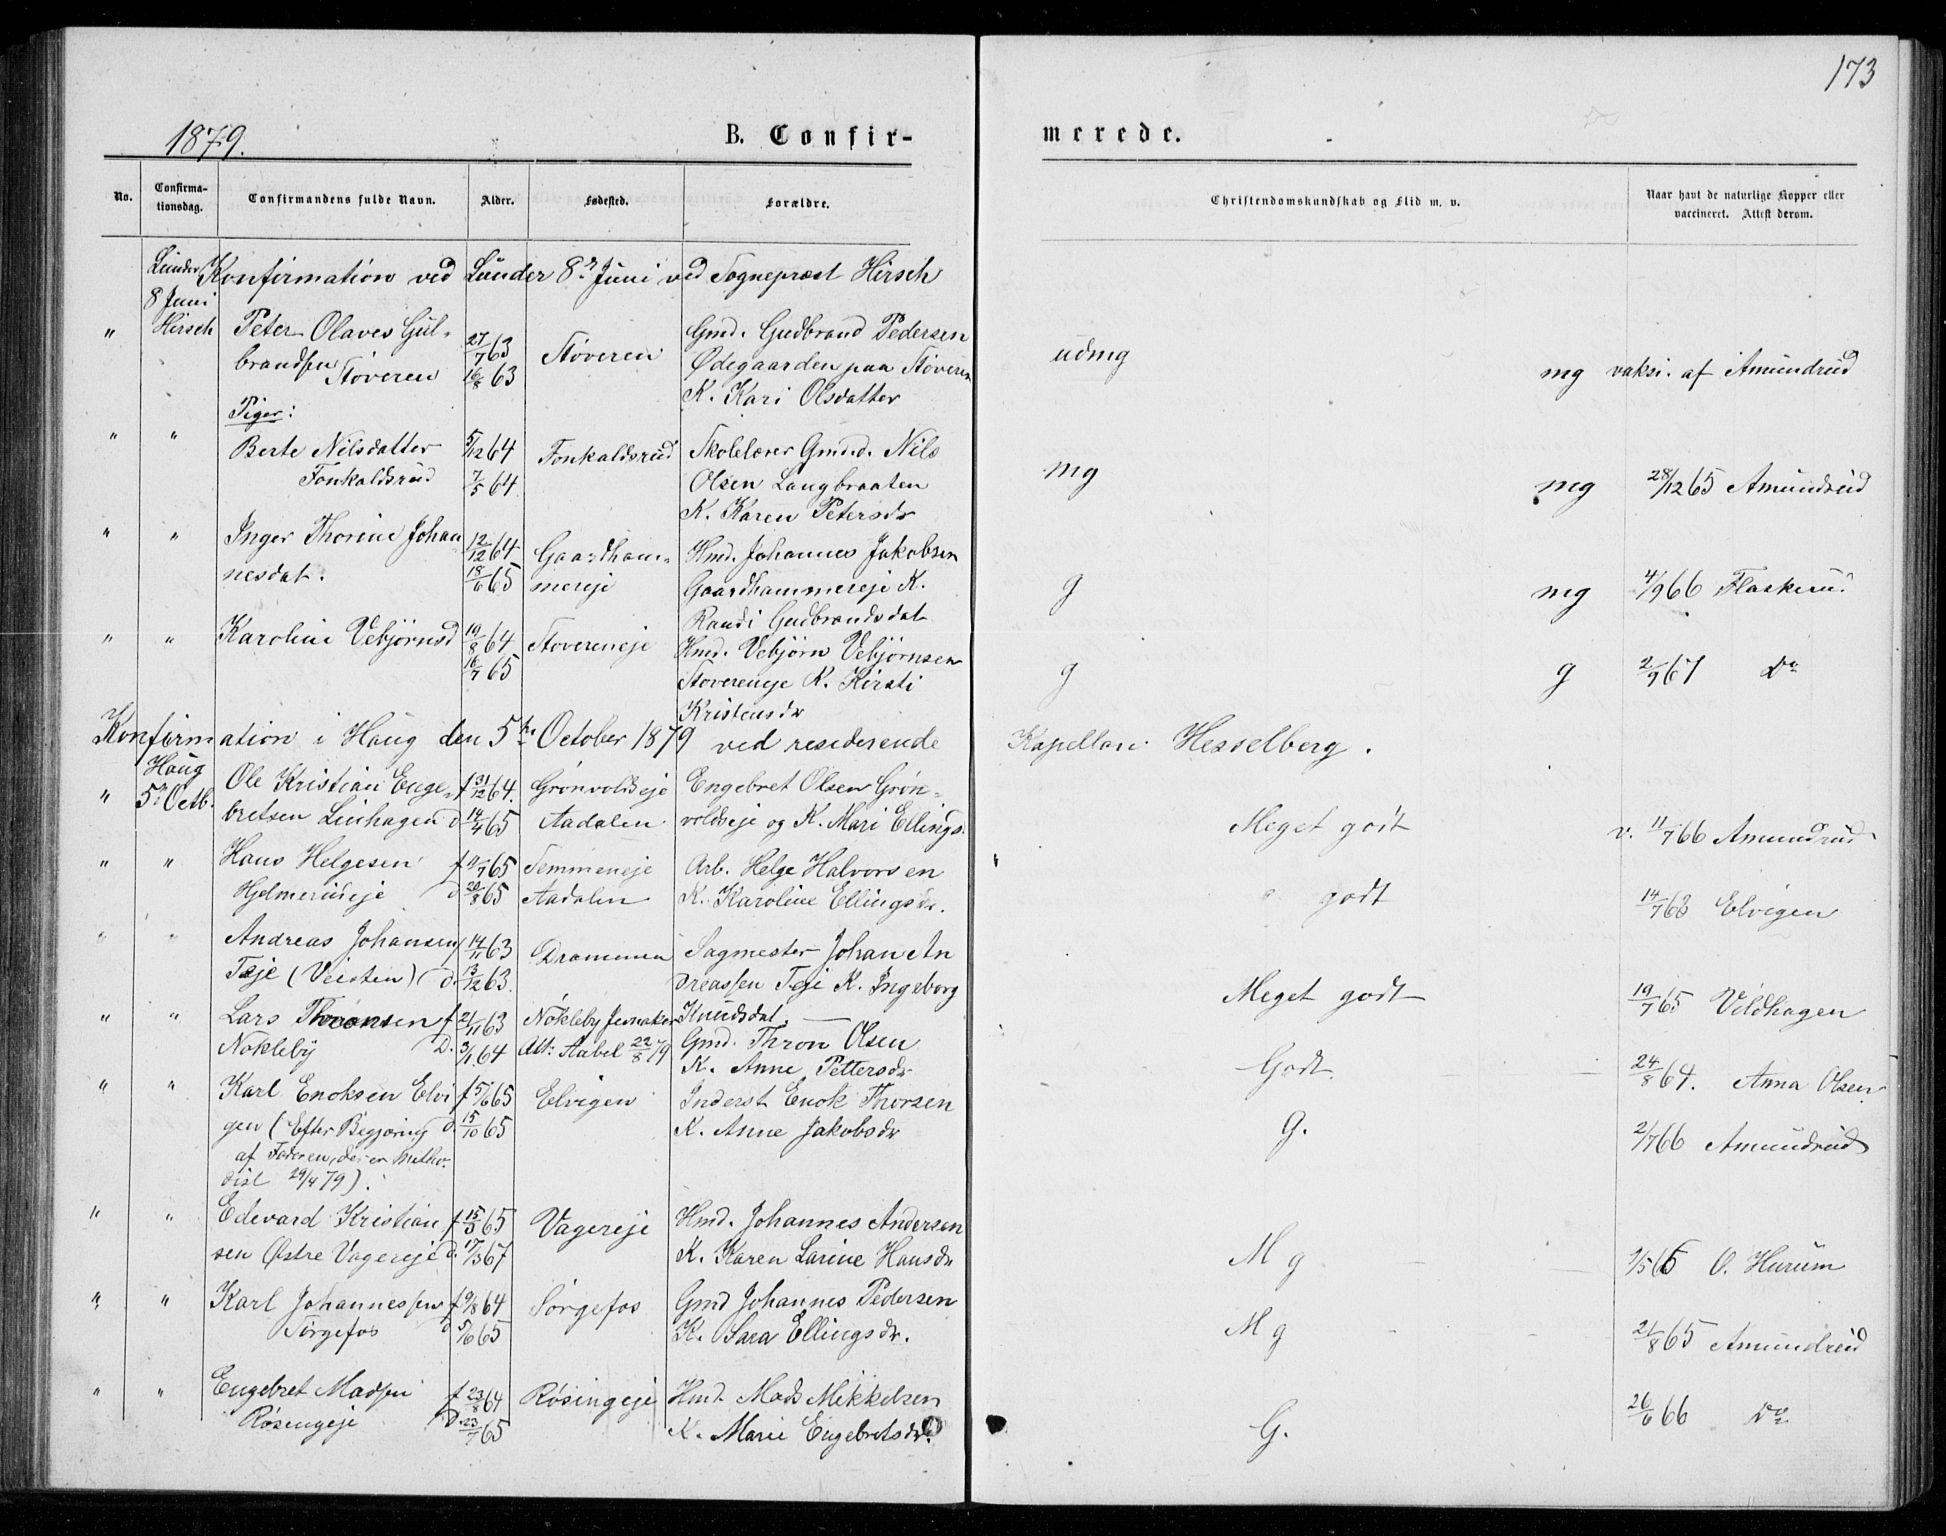 173
1879.
B. Confir-
merede.
No.
Confirma-
tionsdag.
Confirmandens fulde Navn.
Alder.
Fødested.
Forældre.
Christendomskundskab og Flid m. v.
Naar havt de naturlige Kopper eller
vaccineret. Attest derom.
Lunder Konfirmation ved Lunder 8de Juni ved Sognepræst Hirsch
8 Juni
" Hirsch Peter Olaves Gul- 27/7 63 Støveren Gmd. Gudbrand Pedersen udmg mg vaksi. af Amundrud
brandsen Støveren 16/8 63 Ødegaarden paa Støveren
K. Kari Olsdatter
Piger:
" " Berte Nilsdatter 5/12 64 Fonkaldsrud Skolelærer Gmd. Nils mg mg 28/12 65 Amundrud
Fonkaldsrud 7/5 64 Olsen Langbraaten
K. Karen Petersdr
" " Inger Thorine Johan 12/12 64 Gaardham- Hmd. Johannes Jakobsen
nesdat. 18/6 65 mereje Gaardhammereje K. g mg 4/9 66 Flaskerud
Randi Gudbrandsdat
" " Karoline Vebjørnsd 19/8 64 Støvereneje Hmd. Vebjørn Vebjørnsen
16/7 65 Støvereneje K. Kirsti g g 2/9 67 Do
Kristensdr
Konfirmation i Haug den 5te October 1879 ved residerende Kapellan Hesselberg.
Haug
" 5te Octb. Ole Kristian Enge- f 31/12 64. Grønvoldseje Engebret Olsen Grøn-
bretsen Linhagen d 14/4 65 Aadalen voldseje og K. Mari Ellings. Meget godt v. 11/7 66 Amundrud
" " Hans Helgesen f 11/7 65 Semmeneje Arb. Helge Halvorsen
Hjelmerudeje D. 20/8 65 Aadalen K. Karoline Ellingsdr. godt 14/7 63 Elvigen
" " Andreas Johansen f 14/11 63 Drammen Sagmester Johan An
Teje (Veisten) d. 13/12 63. dreassen Teje K. Ingeborg Meget godt 19/7 65 Vildhagen
Knudsdat.
" " Lars Thronsen f 21/11 63 Nökleby Jevnaker Gmd. Thron Olsen
Nökleby D. 3/1 64 Att: Aabel 22/8 79 K. Anne Pettersdr Godt. 24/8 64. Anna Olsen
" " Karl Enoksen Elvi f 5/6 65 Elvigen Inderst Enok Thorsen
gen (Efter Begjæring d. 15/10 65 K. Anne Jakobsdr G. 2/7 66 Amundrud
af Faderen, der er Metho-
dist 29/4 79).
" " Edevard Kristian f 15/3 65 Vagereje Hmd. Johannes Andersen
sen Østre Vagereje d. 17/3 67 K. Karen Larine Hansdr M g 1/5 65 O. Hurum
" " Karl Johannessen f 9/8 64 Sørgefos Gmd Johannes Pedersen
Sørgefos d 5/6 65 K. Sara Ellingsdr. M g 21/8 65 Amundrud
" " Engebret Madsen f 23/8 64 Røsingeje Hmd. Mads Mikkelsen
Røsengeje D. 23/7 65 K. Marie Engebretsdr. G. 26/6 66 Do